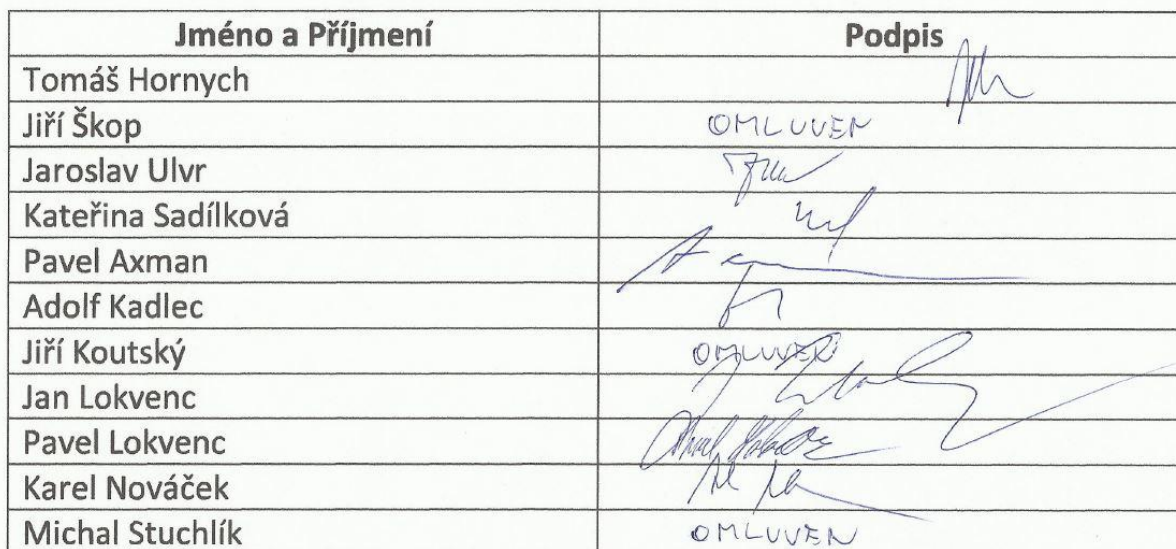 Jméno a Příjmení Podpis
Tomáš Hornych
Jiří Škop OMLUVEN
Jaroslav Ulvr
Kateřina Sadílková
Pavel Axman
Adolf Kadlec
Jiří Koutský OMLUVEN
Jan Lokvenc
Pavel Lokvenc
Karel Nováček
Michal Stuchlík OMLUVEN